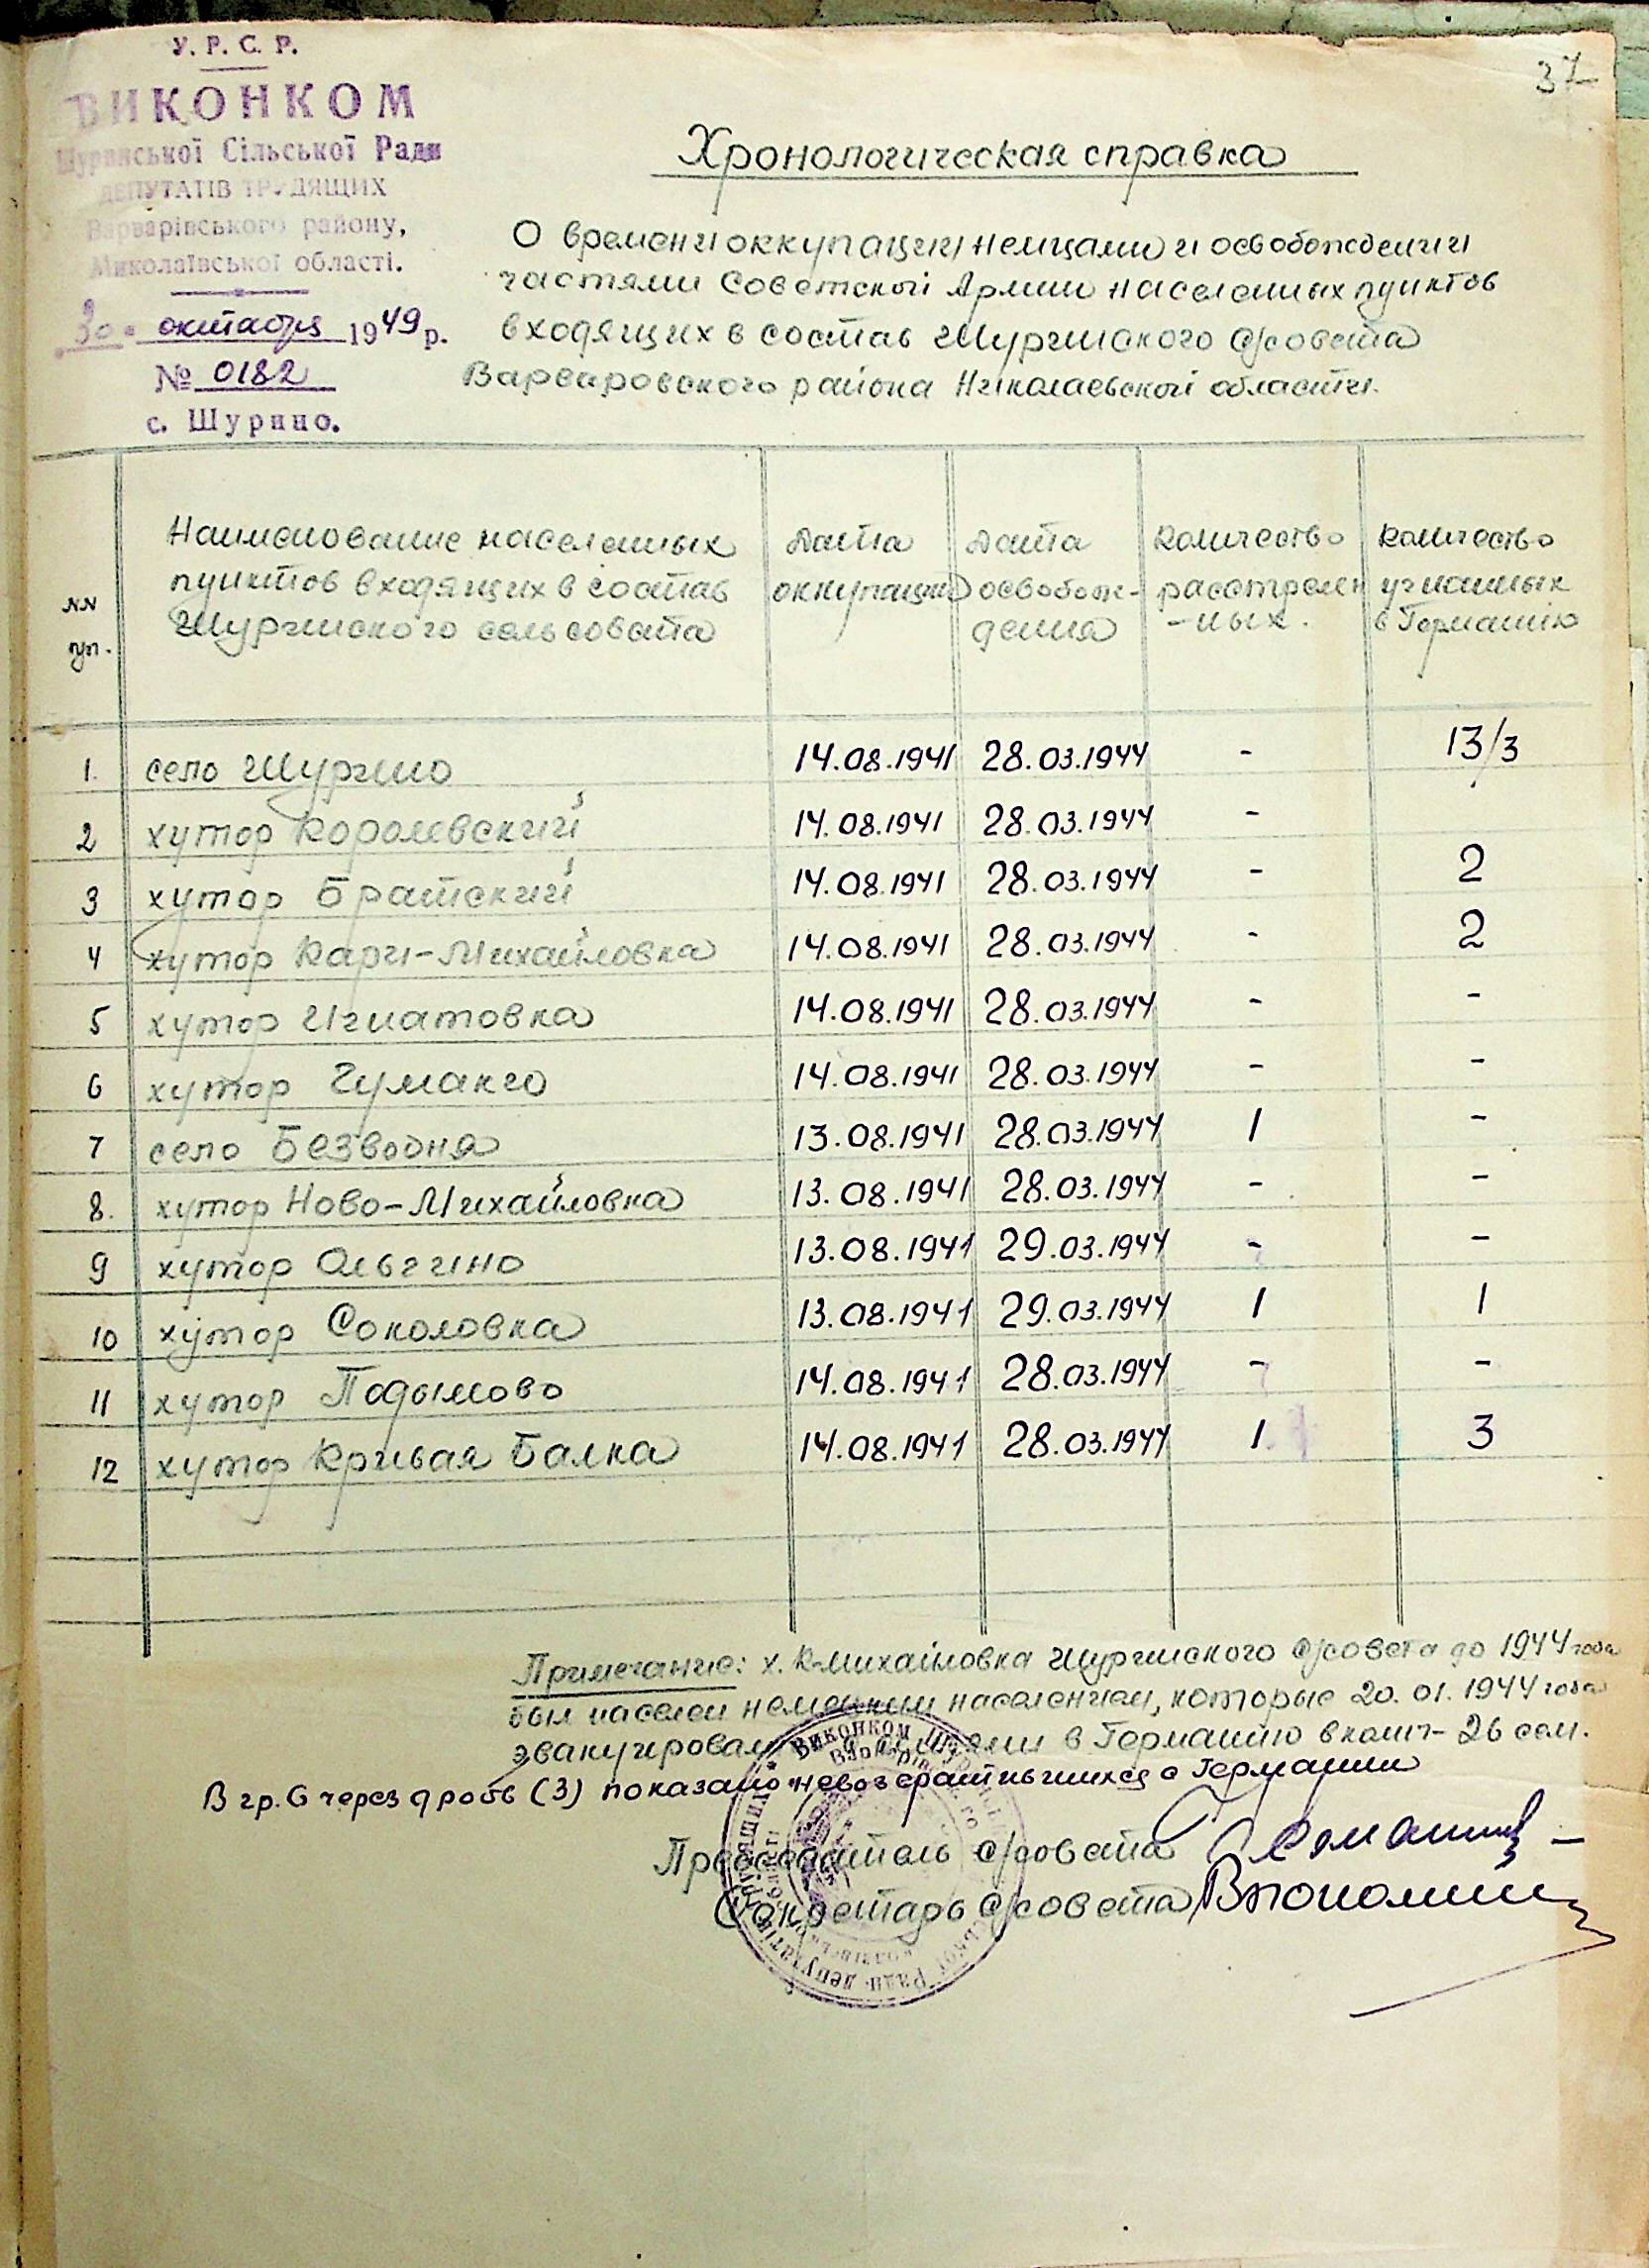 37
У. Р. С. Р.
ВИКОНКОМ
Щуринської Сільської Ради
ДЕПУТАТІВ ТРУДЯЩИХ
Варварівського району,
Миколаївської області.
30 октября 1949 р.
№ 0182
с. Щурино.
Хронологическая справка
О времени оккупации немцами и освобождении
частями Советской Армии населенных пунктов
входящих в состав Щуринского с/совета
Варваровского района Николаевской области.
NN пп. Наименование населенных пунктов входящих в состав Щуринского сельсовета Дата оккупации Дата освобождения Количество расстрелен-ных. Количество угнанных в Германию
1. село Щурино 14.08.1941 28.03.1944 - 13/3
2 хутор Королевский 14.08.1941 28.03.1944 -
3 хутор Братский 14.08.1941 28.03.1944 - 2
4 хутор Карл-Михайловка 14.08.1941 28.03.1944 - 2
5 хутор Игнатовка 14.08.1941 28.03.1944 - -
6 хутор 14.08.1941 28.03.1944 - -
7 село Безводня 13.08.1941 28.03.1944 1 -
8. хутор Ново-Михайловка 13.08.1941 28.03.1944 - -
9 хутор Ольгино 13.08.1941 29.03.1944 - -
10 хутор Соколовка 13.08.1941 29.03.1944 1 1
11 хутор Подымово 14.08.1941 28.03.1944 - -
12 хутор Кривая Балка 14.08.1941 28.03.1944 1 3
Примечание: х. К-Михайловка Щуринского с/совета до 1944 года
был населен немецким населением, которые 20.01.1944 года
эвакуированы в Германию в колич- 26 сем.
В гр. 6 через дробь (3) показано невозвратившихся с Германии
Председатель с/совета
Секретарь с/совета
ВИКОНКОМ